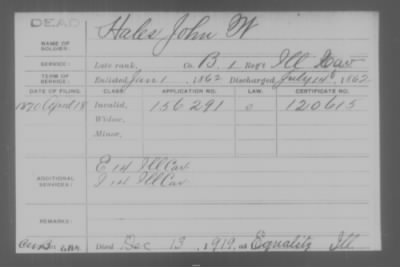 DEAD
Hales John W
NAME OF SOLDIER:
SERVICE: Late rank, Co. B 1 Reg't Ill Cav
TERM OF SERVICE: Enlisted Jun 1, 1862 Discharged July 14, 1862
DATE OF FILING. CLASS. APPLICATION NO. LAW. CERTIFICATE NO.
1870 April 18 Invalid, 156291 120615
Widow,
Minor,
ADDITIONAL SERVICES:
E 1st Ill Cav
I 1st Ill Cav
REMARKS:
Died Dec 13, 1919, at Equality Ill